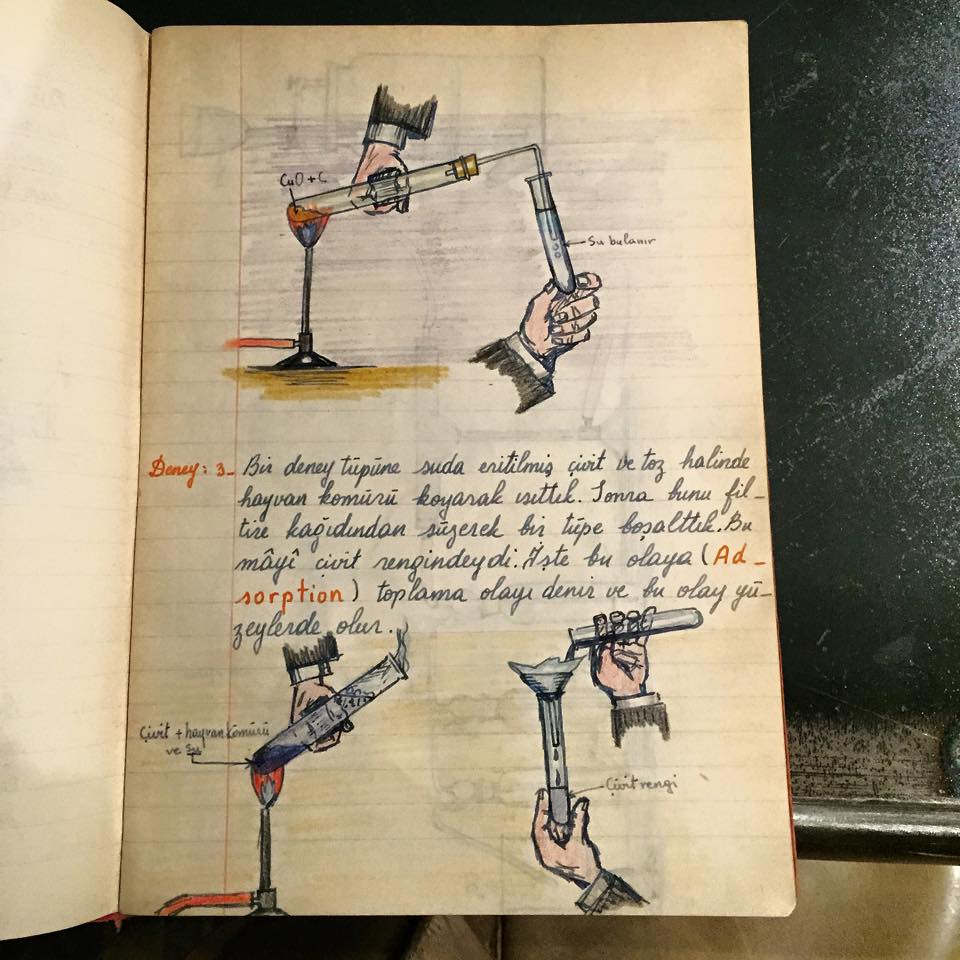 CuO + C
Su bulanır
Deney: 3_ Bir deney tüpüne suda eritilmiş çivit ve toz halinde
hayvan kömürü koyarak ısıttık. Sonra bunu fil_
tire kağıdından süzerek bir tüpe boşalttık. Bu
mâyî çivit rengindeydi. İşte bu olaya (Ad_
sorption) toplama olayı denir ve bu olay yü_
zeylerde olur.
Çivit + hayvan kömürü
ve su
Çivit rengi